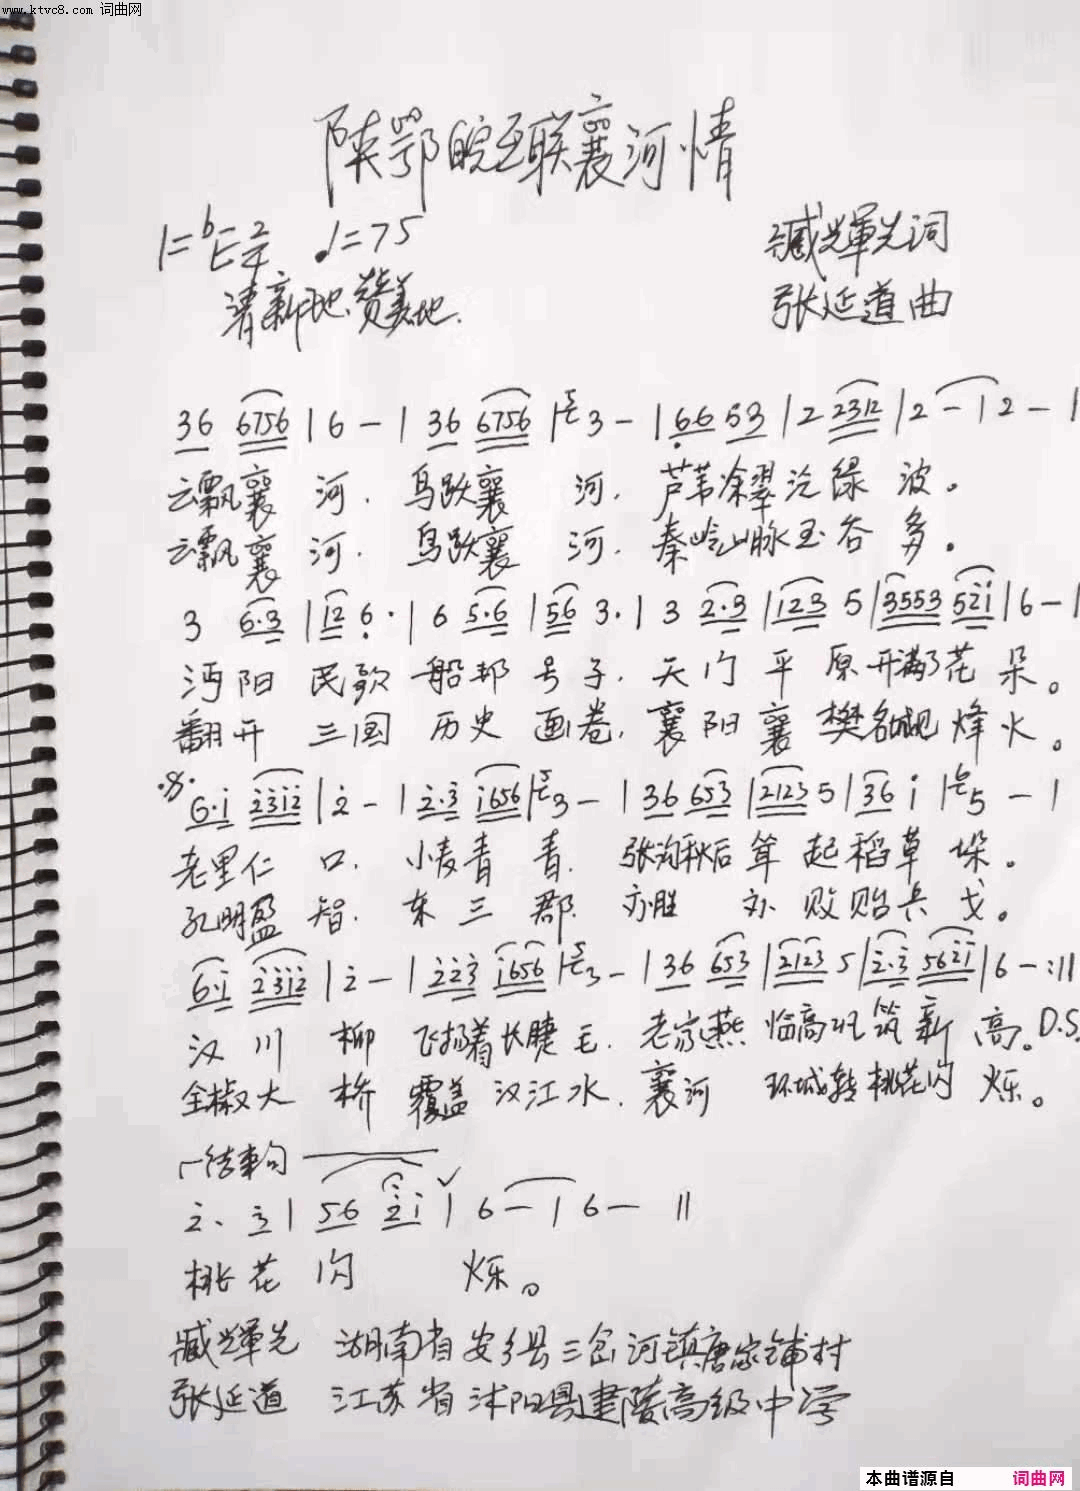 www.ktvc8.com 词曲网
陕鄂皖互联襄河情
1=bE 2/4 ♩=75 臧輝光词
清新地、赞美地. 张延道曲
36 6756 | 6 - | 36 6756 | 3 - | 66 53 | 2 2312 | 2 - | 2 - |
云飘襄河. 鸟跃襄河. 芦苇涂翠泛绿波。
云飘襄河. 鸟跃襄河. 秦岭山脉玉谷多.
3 6·3 | 12 6· | 6 5·6 | 56 3· | 3 2·3 | 123 5 | 3553 521 | 6 - |
沔阳民歌船邦号子. 天门平原开满了花朵。
翻开三国历史画卷. 襄阳襄樊名城烽火。
6·i 2312 | 2 - | 2·3 i656 | 3 - | 36 653 | 2123 5 | 36 i | 5 - |
老里仁口. 小麦青青. 张沟秋后耸起稻草垛。
孔明盈智. 东三郡. 亦胜亦败贻兵戈。
6·i 2312 | 2 - | 223 i656 | 3 - | 36 653 | 2123 5 | 2·3 562i | 6 - :||
汉川柳飞扬着长睫毛. 老家燕临高筑新高。D.S.
全椒大桥覆盖汉江水. 襄河环城转桃花闪烁。
结束句
2· 3 | 56 2i | 6 - | 6 - ||
桃花闪烁。
臧輝光 湖南省安乡县三岔河镇唐家铺村
张延道 江苏省沭阳县建陵高级中学
本曲谱源自 词曲网